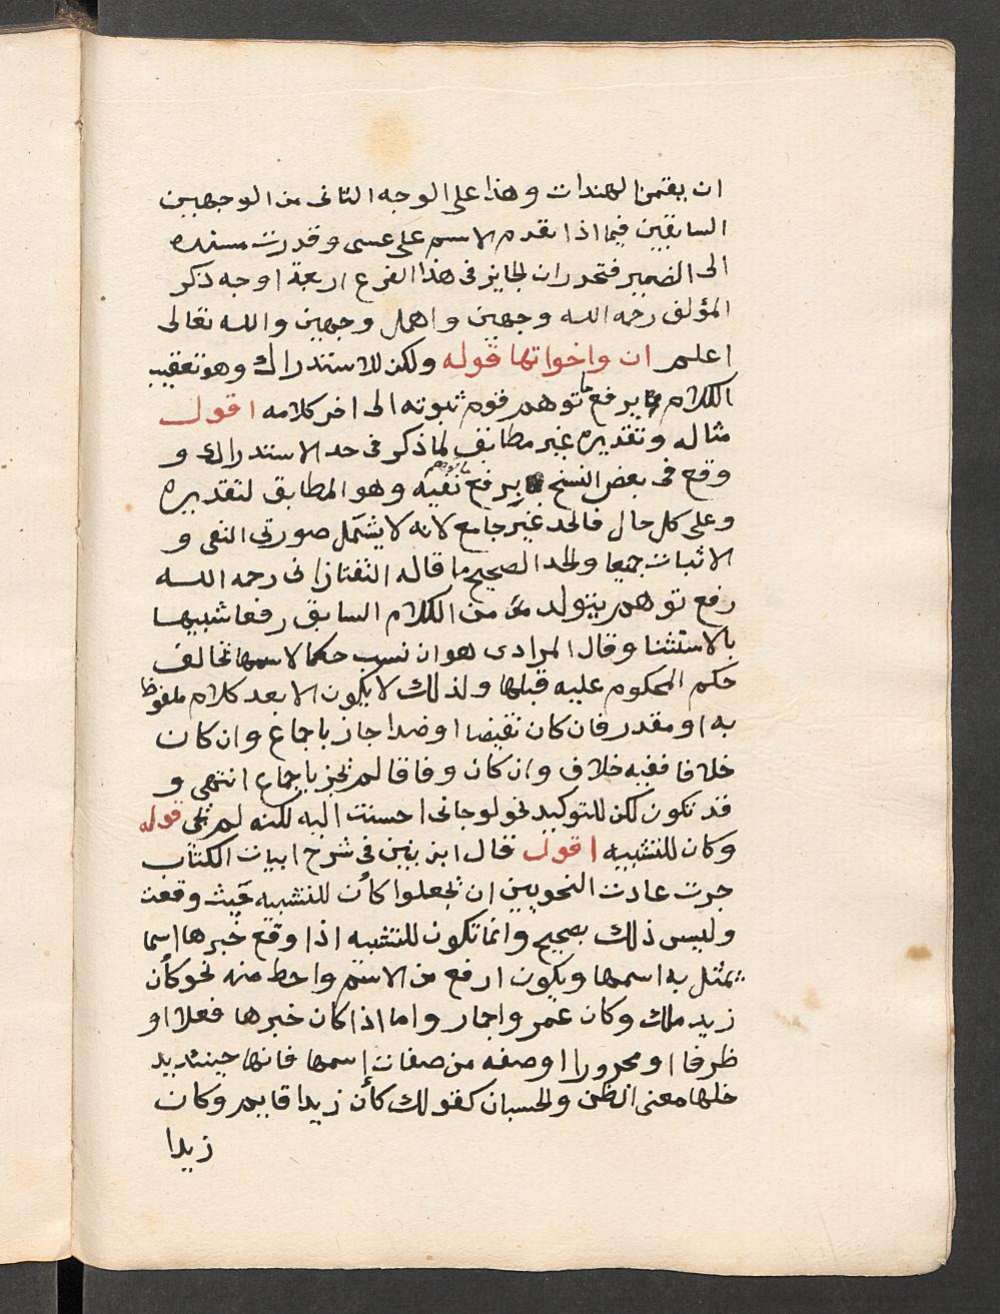 ان يقمن الهندات وهذا على الوجه الثانى من الوجهين
السابقين فيما اذا تقدم الاسم على عسى وقدرت مسنده
الى الضمير فتحرر ان الجايز فى هذا الفرع اربعة اوجه ذكر
المؤلف رحمه الله وجهين واهمل وجهين والله تعالى
اعلم ان واخواتها قوله ولكن للاستدراك وهو تعقيب
الكلام برفع ما توهم ثبوته الى اخر كلامه اقول
مثاله وتقديره غير مطابق لما ذكر فى حد الاستدراك و
وقع فى بعض النسخ برفع ما يتوهم نفيه وهو المطابق لتقديره
وعلى كل حال فالحد غير جامع لانه لا يشمل صورتى النفى و
الاثبات جميعا والحد الصحيح ما قاله التفتازانى رحمه الله
رفع توهم يتولد من الكلام السابق رفعا شبيها
بالاستثنا وقال المرادى هو ان نسب حكما لاسمها تخالف
حكم المحكوم عليه قبلها ولذلك لا يكون الا بعد كلام ملفوظ
به او مقدر فان كان نقيضا او ضدا جاز باجماع وان كان
خلافا ففيه خلاف وان كان وفاقا لم تجز باجماع انتهى و
قد تكون لكن للتوكيد نحو لو جانى احسنت اليه لكنه لم يجى قوله
وكان للتشبيه اقول قال ابن يبين فى شرح ابيات الكتاب
جرت عادت النحويين ان تجعلوا كأن للتشبيه حيث وقعت
وليس ذلك بصحيح وانما تكون للتشبيه اذا وقع خبرها اسما
يمثل به اسمها ويكون ارفع من الاسم واحط منه نحو كأن
زيد ملك وكان عمر واحمار واما اذا كان خبرها فعلا او
ظرفا او مجرورا او صفه من صفات إسمها فانها حينئذ يد
خلها معنى الظن والحسبان كقولك كأن زيدا قايم وكان
زيدا